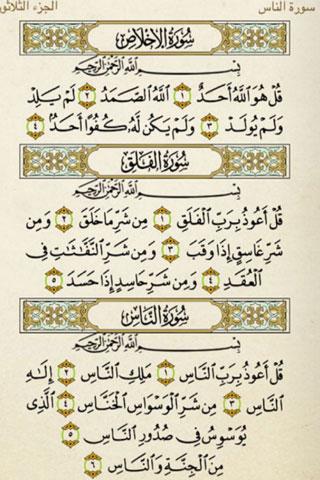 سورة الناس الجزء الثلاثون
سُورَةُ الإِخْلَاصِ
بِسْمِ اللَّهِ الرَّحْمَٰنِ الرَّحِيمِ
قُلْ هُوَ اللَّهُ أَحَدٌ ١ اللَّهُ الصَّمَدُ ٢ لَمْ يَلِدْ
وَلَمْ يُولَدْ ٣ وَلَمْ يَكُن لَّهُ كُفُوًا أَحَدٌ ٤
سُورَةُ الْفَلَقِ
بِسْمِ اللَّهِ الرَّحْمَٰنِ الرَّحِيمِ
قُلْ أَعُوذُ بِرَبِّ الْفَلَقِ ١ مِن شَرِّ مَا خَلَقَ ٢ وَمِن
شَرِّ غَاسِقٍ إِذَا وَقَبَ ٣ وَمِن شَرِّ النَّفَّاثَاتِ فِي
الْعُقَدِ ٤ وَمِن شَرِّ حَاسِدٍ إِذَا حَسَدَ ٥
سُورَةُ النَّاسِ
بِسْمِ اللَّهِ الرَّحْمَٰنِ الرَّحِيمِ
قُلْ أَعُوذُ بِرَبِّ النَّاسِ ١ مَلِكِ النَّاسِ ٢ إِلَٰهِ
النَّاسِ ٣ مِن شَرِّ الْوَسْوَاسِ الْخَنَّاسِ ٤ الَّذِي
يُوَسْوِسُ فِي صُدُورِ النَّاسِ ٥
مِنَ الْجِنَّةِ وَالنَّاسِ ٦